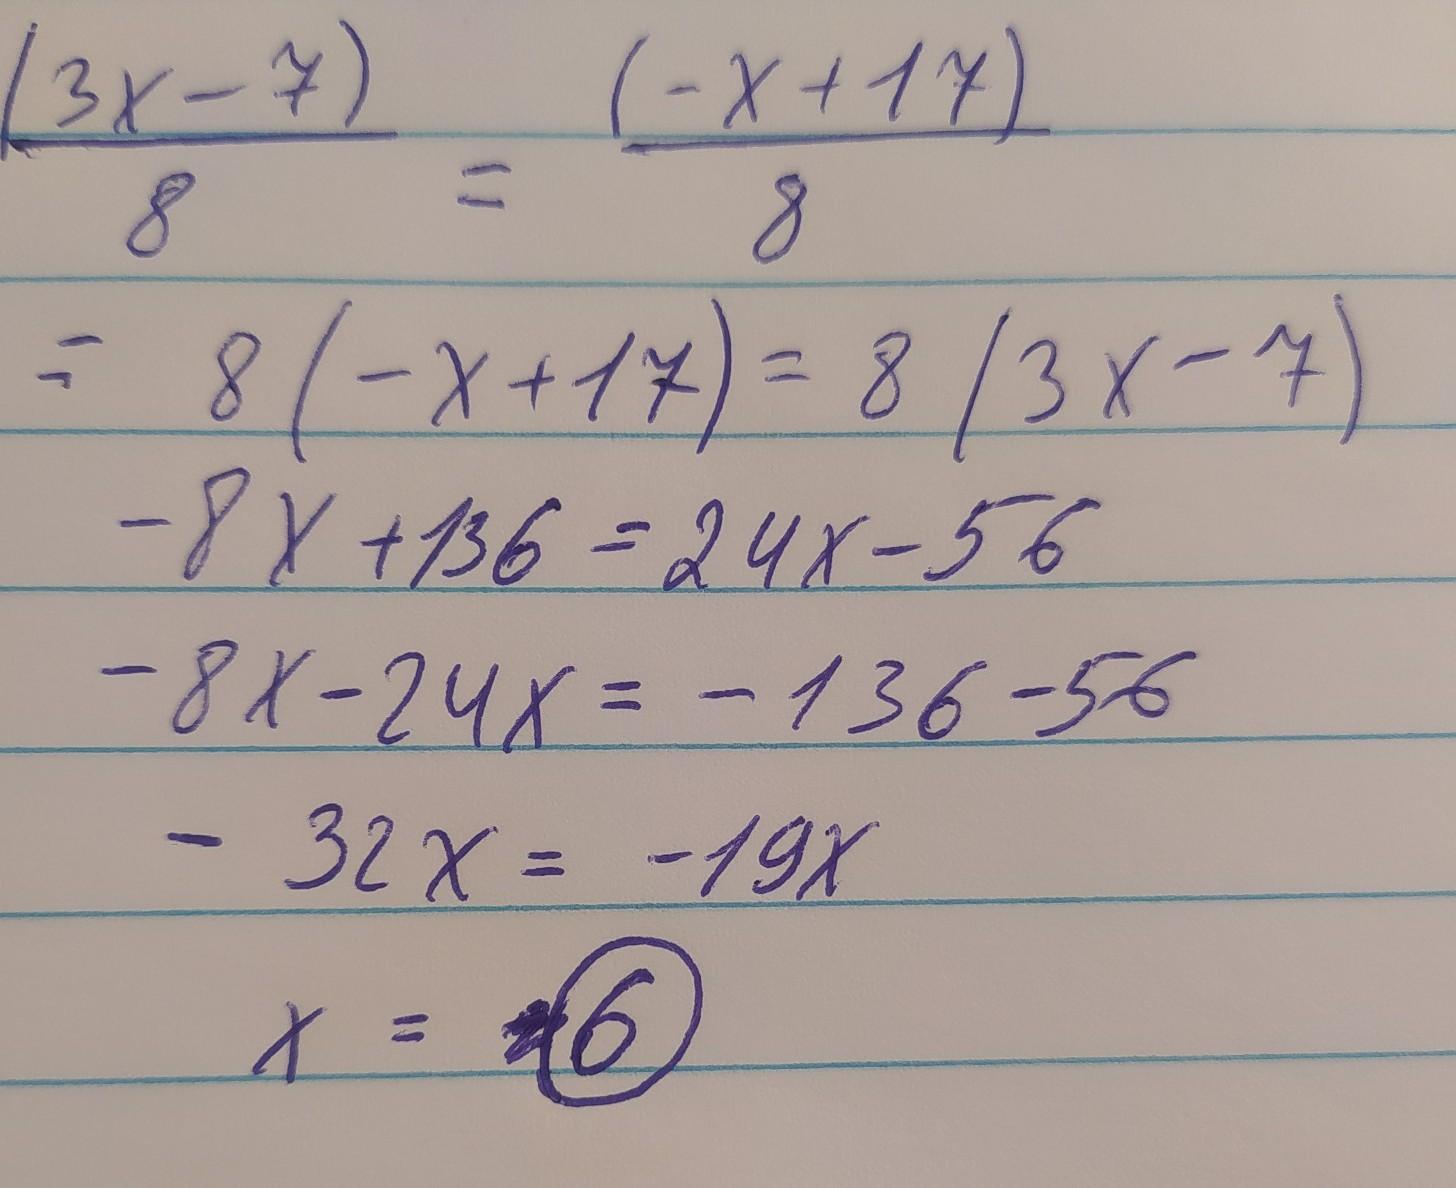 (3x-7)/8 = (-x+17)/8
= 8(-x+17) = 8(3x-7)
-8x+136 = 24x-56
-8x-24x = -136-56
- 32x = -19x
x = 6